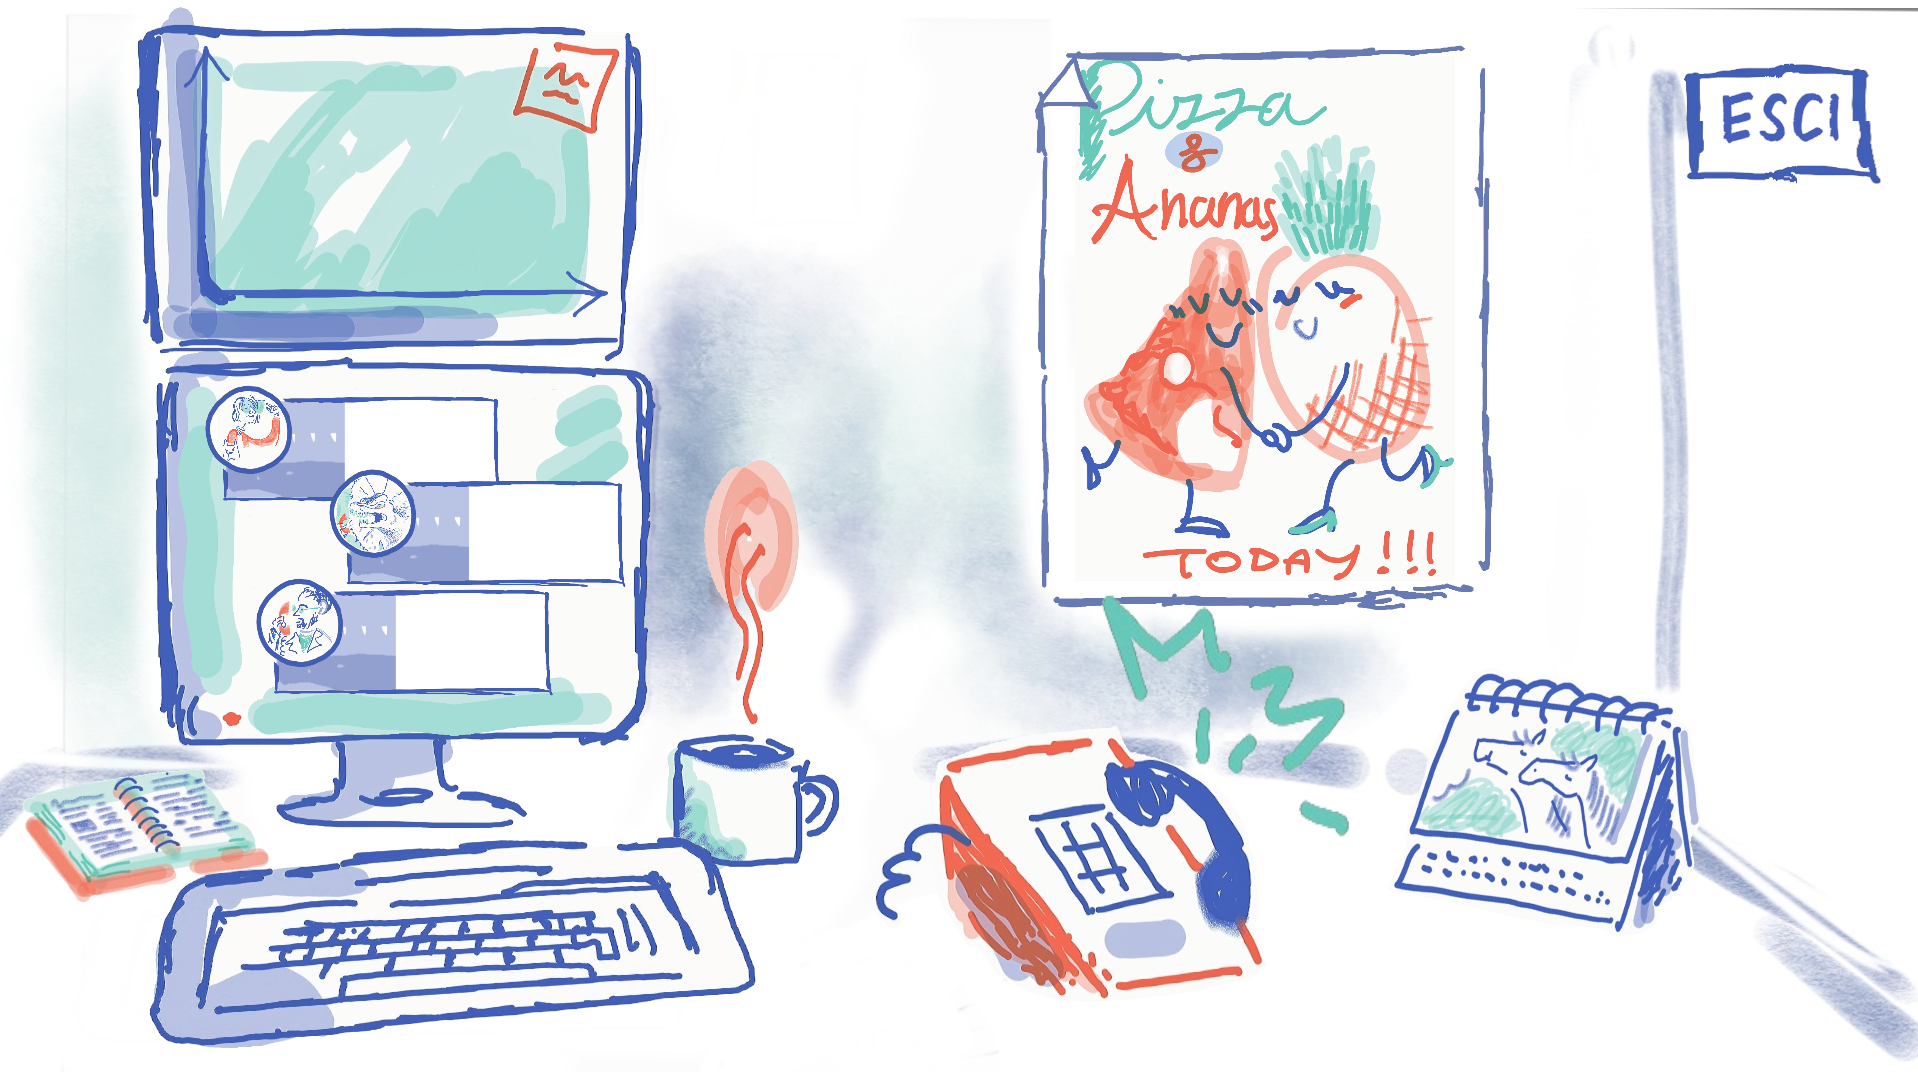 Pizza
&
Ananas
TODAY!!!
ESCI